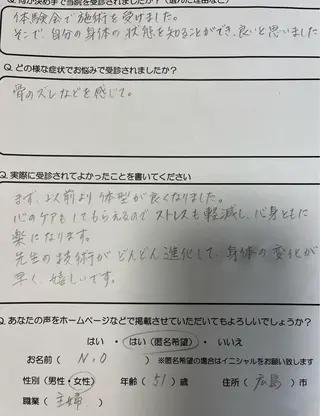 Q. 何が決め手で当院を受診されましたか？（選んだ理由など）
体験会で施術を受けました。
そこで、自分の身体の状態を知ることができ、良いと思いました
Q. どの様な症状でお悩みで受診されましたか？
骨のズレなどを感じて。
Q. 実際に受診されてよかったことを書いてください
まず、以前より体型が良くなりました。
心のケアもしてもらえるので ストレスも軽減し、心身ともに
楽になります。
先生の技術が どんどん進化して、身体の変化が
早く、嬉しいです。
Q. あなたの声をホームページなどで掲載させていただいてもよろしいでしょうか？
はい ・ はい（匿名希望） ・ いいえ
お名前（ N.O ） ※匿名希望の場合はイニシャルをお願い致します
性別（男性・女性） 年齢（ 51 ）歳 住所（ 広島 ）市
職業（ 主婦 ）